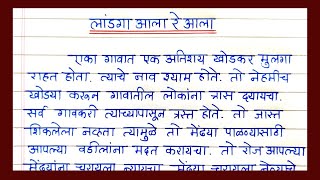 लांडगा आला रे आला
एका गावात एक अतिशय खोडकर मुलगा
राहत होता. त्याचे नाव श्याम होते. तो नेहमीच
खोड्या करून गावातील लोकांना त्रास द्यायचा.
सर्व गावकरी त्याच्यापासून त्रस्त होते. तो जास्त
शिकलेला नव्हता त्यामुळे तो मेंढ्या पाळण्यासाठी
आपल्या वडीलांना मदत करायचा. तो रोज आपल्या
मेंढ्यांना चरायला न्यायचा. मेंढ्या चरायला